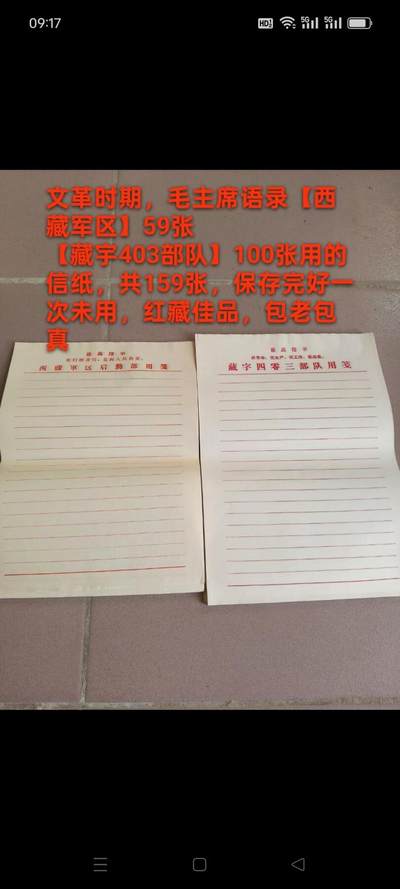 09:17
HD 5G 5G
文革时期，毛主席语录【西
藏军区】59张
【藏宇403部队】100张用的
信纸，共159张，保存完好一
次未用，红藏佳品，包老包
真
最高指示
西藏军区后勤部用笺
最高指示
抓革命，促生产，促工作，促战备。
藏字四零三部队用笺